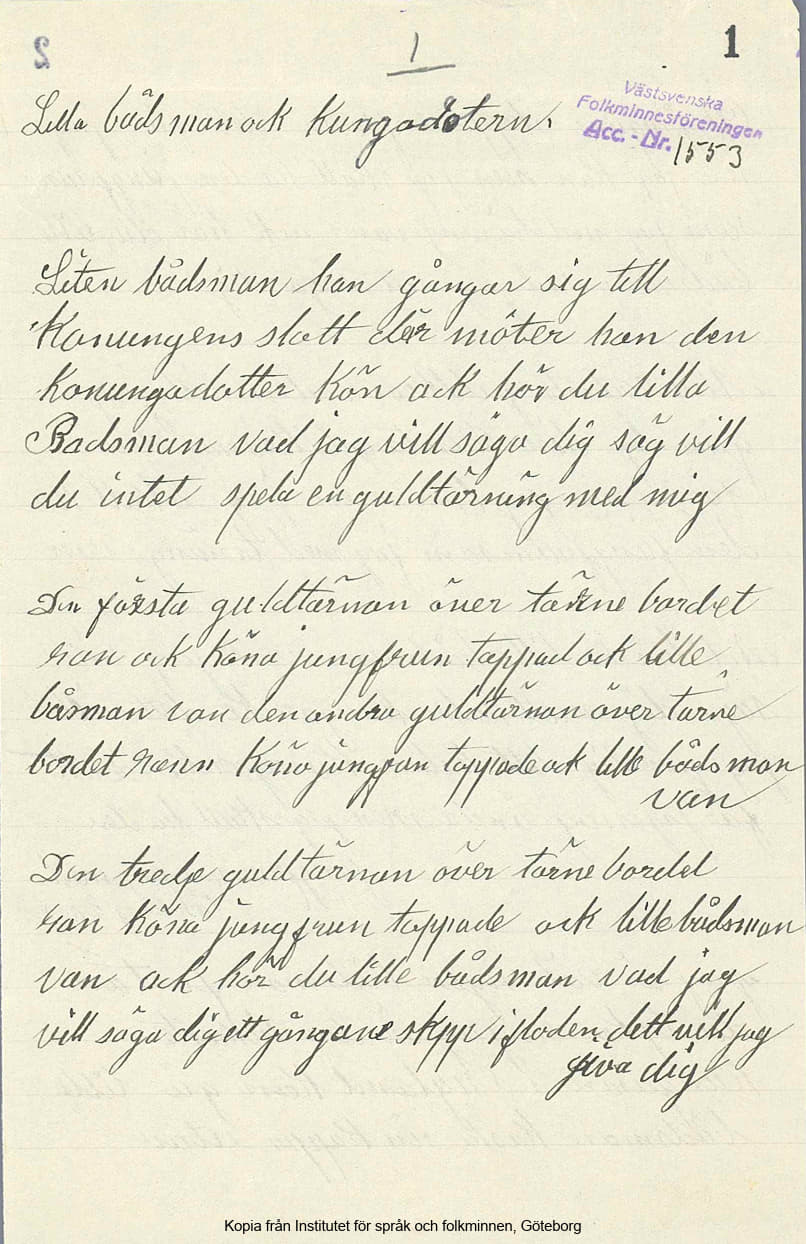 1
1
Lilla bådsman ock Kungadotern.
Västsvenska
Folkminnesföreningen
Acc.-Nr. 1553
Liten bådsman han gångar sig till
Konungens slott där möter han den
Konungadotter Kön ock hör du lilla
Badsman vad jag vill säga dig säg vill
du intet spela en guldtärning med mig
Den första guldtärnan över tärne bordet
ran ock Köna jungfrun tappad ock lille
båsman van den andra guldtärnan över tärne
bordet rann Köna jungfrun tappade ock lille bådsman
van
Den tredje guldtärnan över tärne bordet
ran Köna jungfrun tappade ock lille bådsman
van ock hör du lille bådsman vad jag
vill säga dig ett gångane skepp i floden dett vill jag
giva dig
Kopia från Institutet för språk och folkminnen, Göteborg